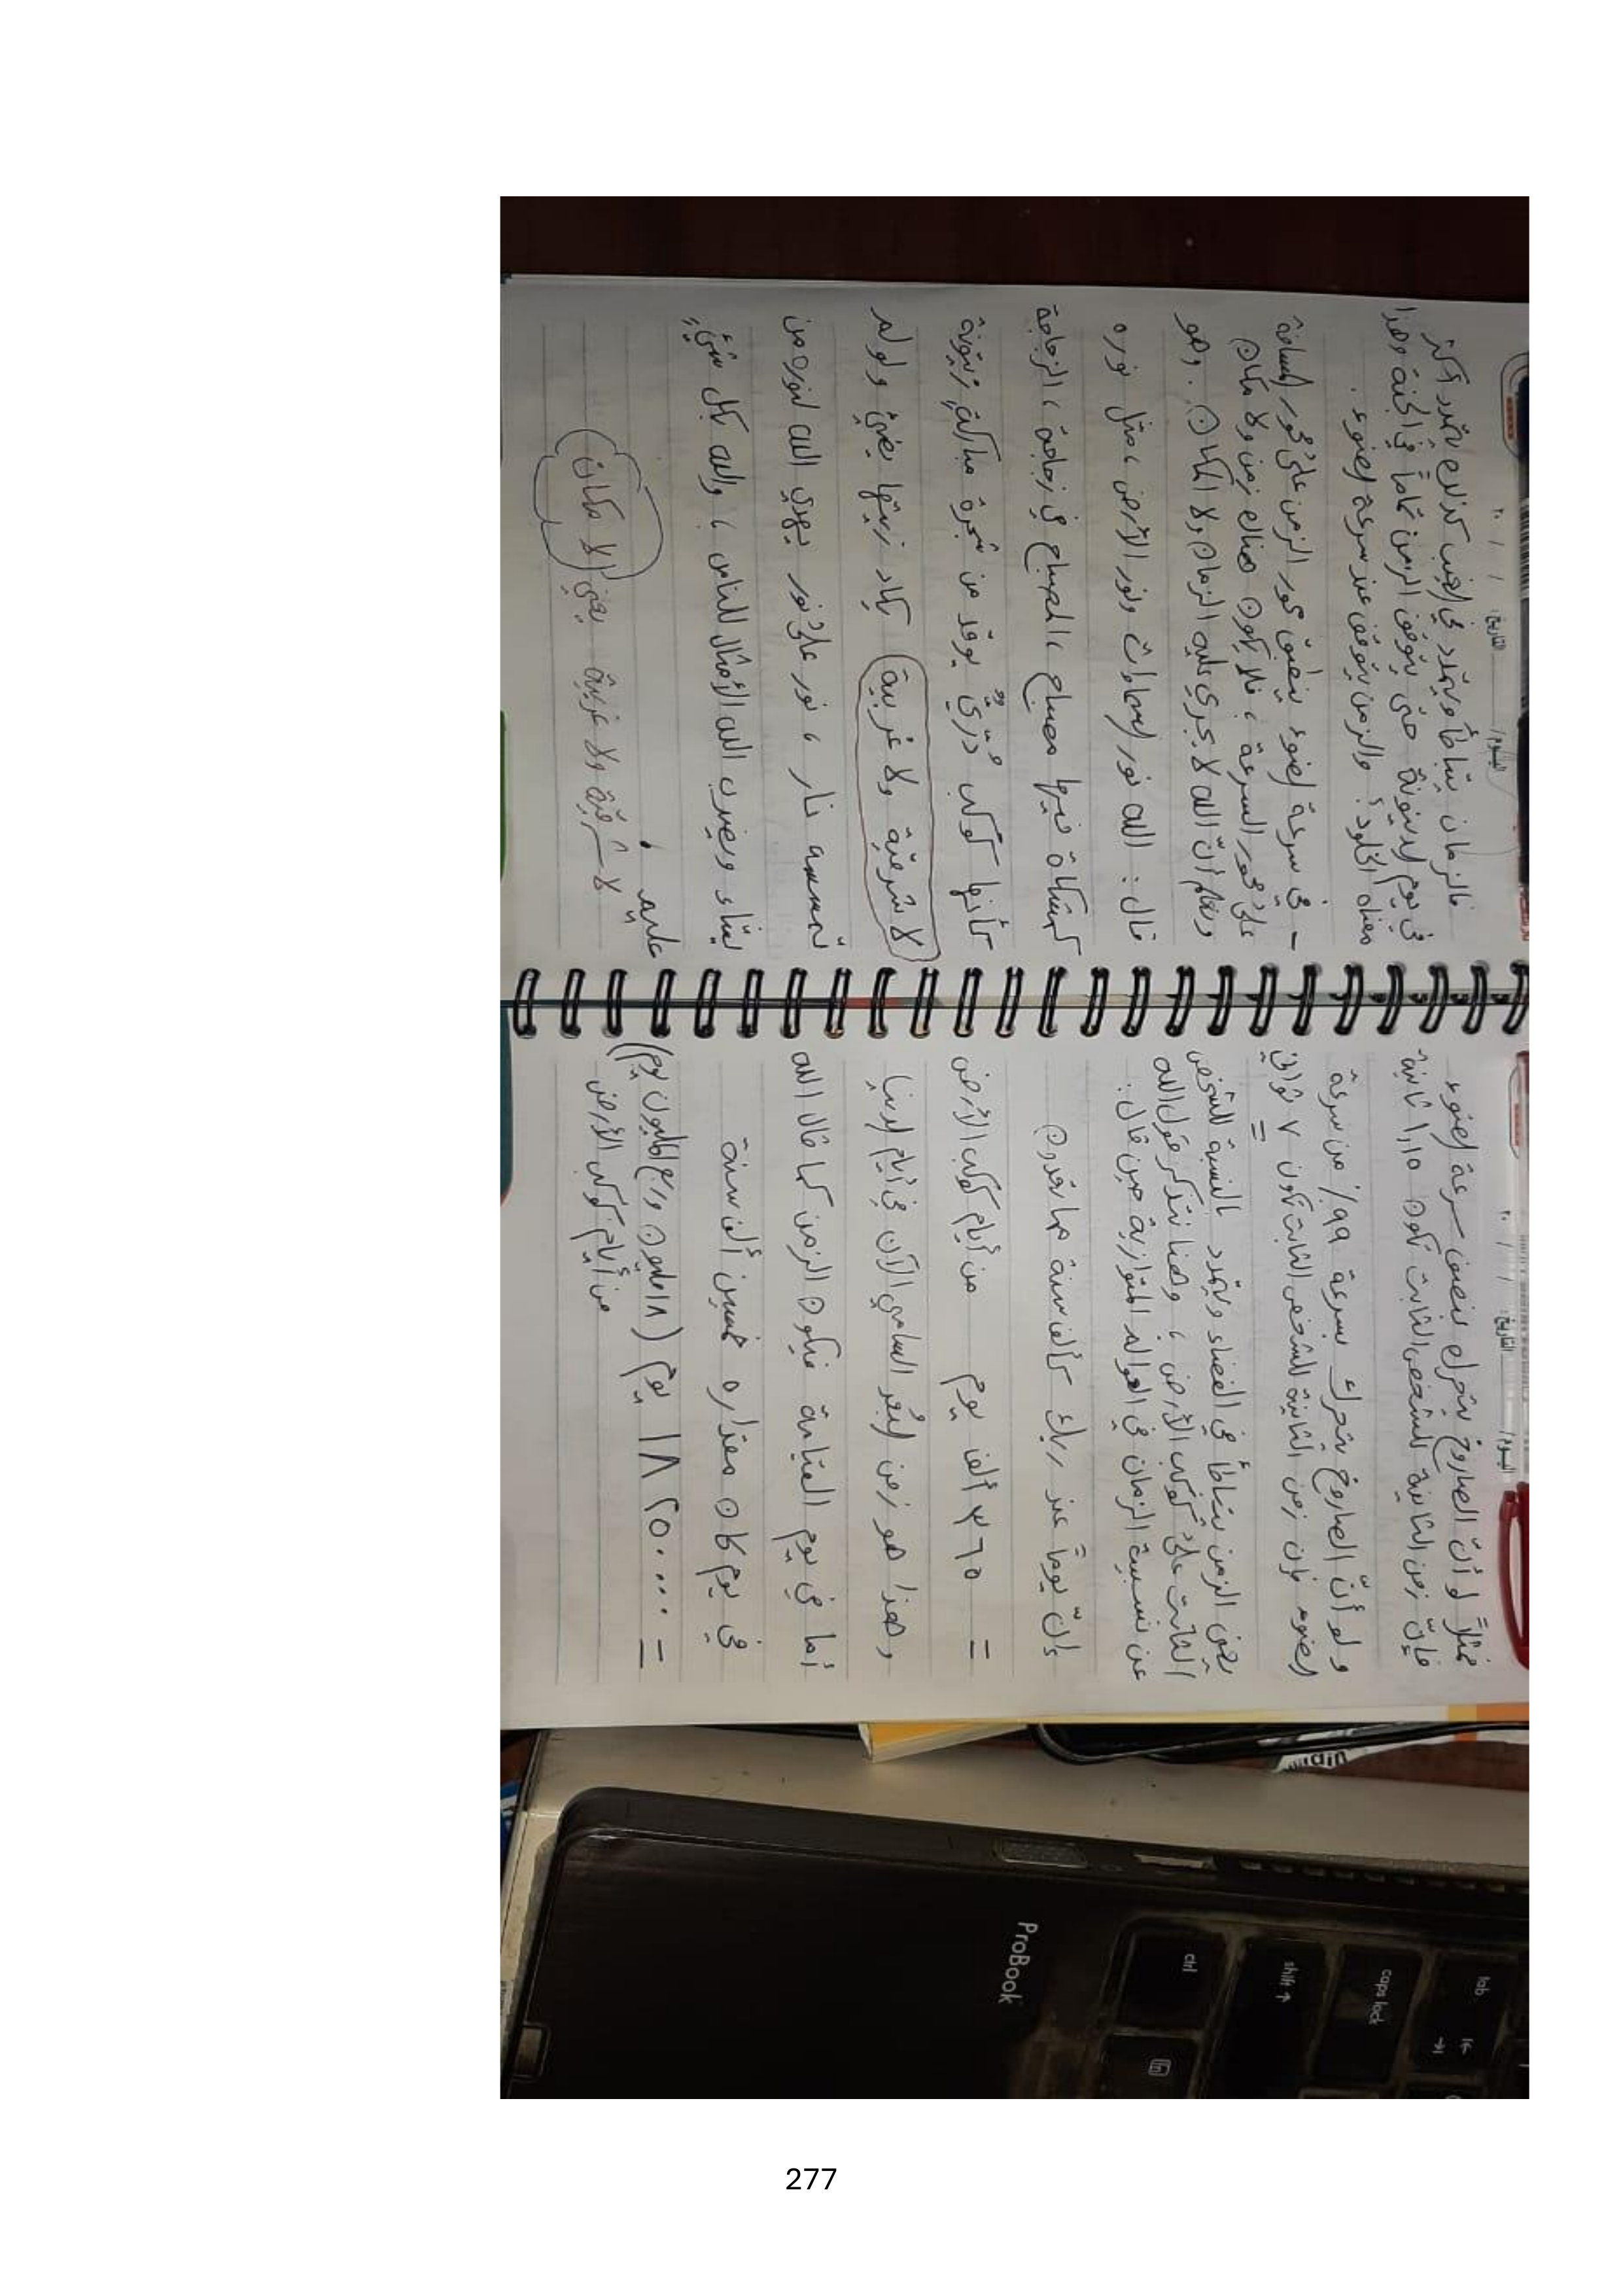 اليوم: التاريخ: / / ٢٠
فمثلاً لو أنّ الصاروخ يتحرك بنصف سرعة الضوء
فإنّ زمن الثانية للشخص الثابت تكون ١,١٥ ثانية
ولو أنّ الصاروخ يتحرك بسرعة ٩٩٪ من سرعة
الضوء فإن زمن الثانية للشخص الثابت تكون ٧ ثواني
=
يعني الزمن يتباطأ في الفضاء ويتمدد بالنسبة للشخص
الثابت على كوكب الأرض ، وهنا نتذكر قول الله
عن نسبية الزمان في العوالم المتوازية حين قال:
وإنّ يوماً عند ربك كألف سنة مما تعدون
= ٣٦٥ ألف يوم من أيام كوكب الأرض
وهذا هو زمن البُعد السامي الآن في أيام الدنيا
أما في يوم القيامة فيكون الزمن كما قال الله
في يوم كان مقداره خمسين ألف سنة
= ١٨٢٥٠... يوم (١٨ مليون وربع المليون يوم)
من أيام كوكب الأرض
اليوم: التاريخ: / / ٢٠
فالزمان يتباطأ ويتمدد في الغيب كذلك يتمدد أكثر
في يوم الدينونة حتى يتوقف الزمن تماماً في الجنة وهذا
معناه الخلود؟ والزمن يتوقف عند سرعة الضوء .
- في سرعة الضوء ينطبق محور الزمن على محور المسافة
على محور السرعة ، فلا يكون هنالك زمن ولا مكان
ونعلم أنّ الله لا يجري عليه الزمان ولا المكان . وهو
قال : الله نور السماوات ونور الأرض ، مثل نوره
كمشكاة فيها مصباح ، المصباح في زجاجة ، الزجاجة
كأنها كوكب دُرّيٌّ يوقد من شجرة مباركةٍ زيتونة
لا شرقية ولا غربية يكاد زيتها يضيئ ولو لم
تمسسه نار ، نور على نور يهدي الله لنوره من
يشاء ويضرب الله الأمثال للناس ، والله بكل شيئٍ
عليم .
لا شرقية ولا غربية يعني (لا مكان)
ProBook
tab
caps lock
shift
ctrl
fn
277